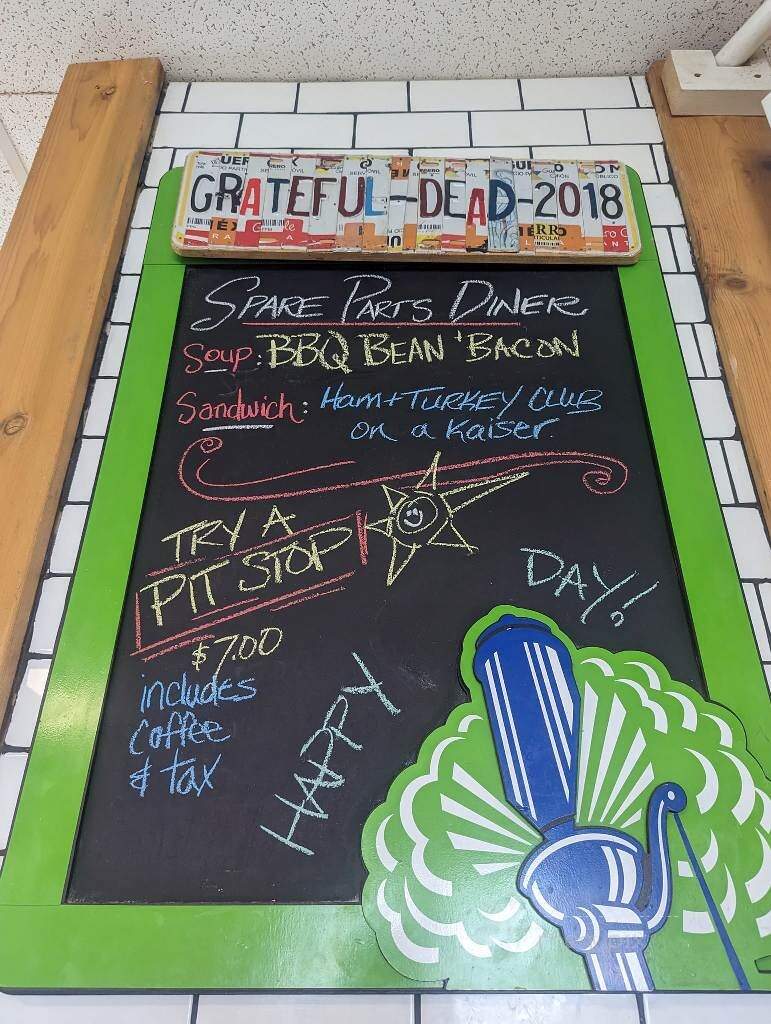 GRATEFUL-DEAD-2018
SPARE PARTS DINER
Soup: BBQ BEAN 'BACON
Sandwich: Ham + TURKEY CLUB
on a Kaiser
TRY A
PIT STOP
$7.00
includes
coffee
& tax
HAPPY
DAY!